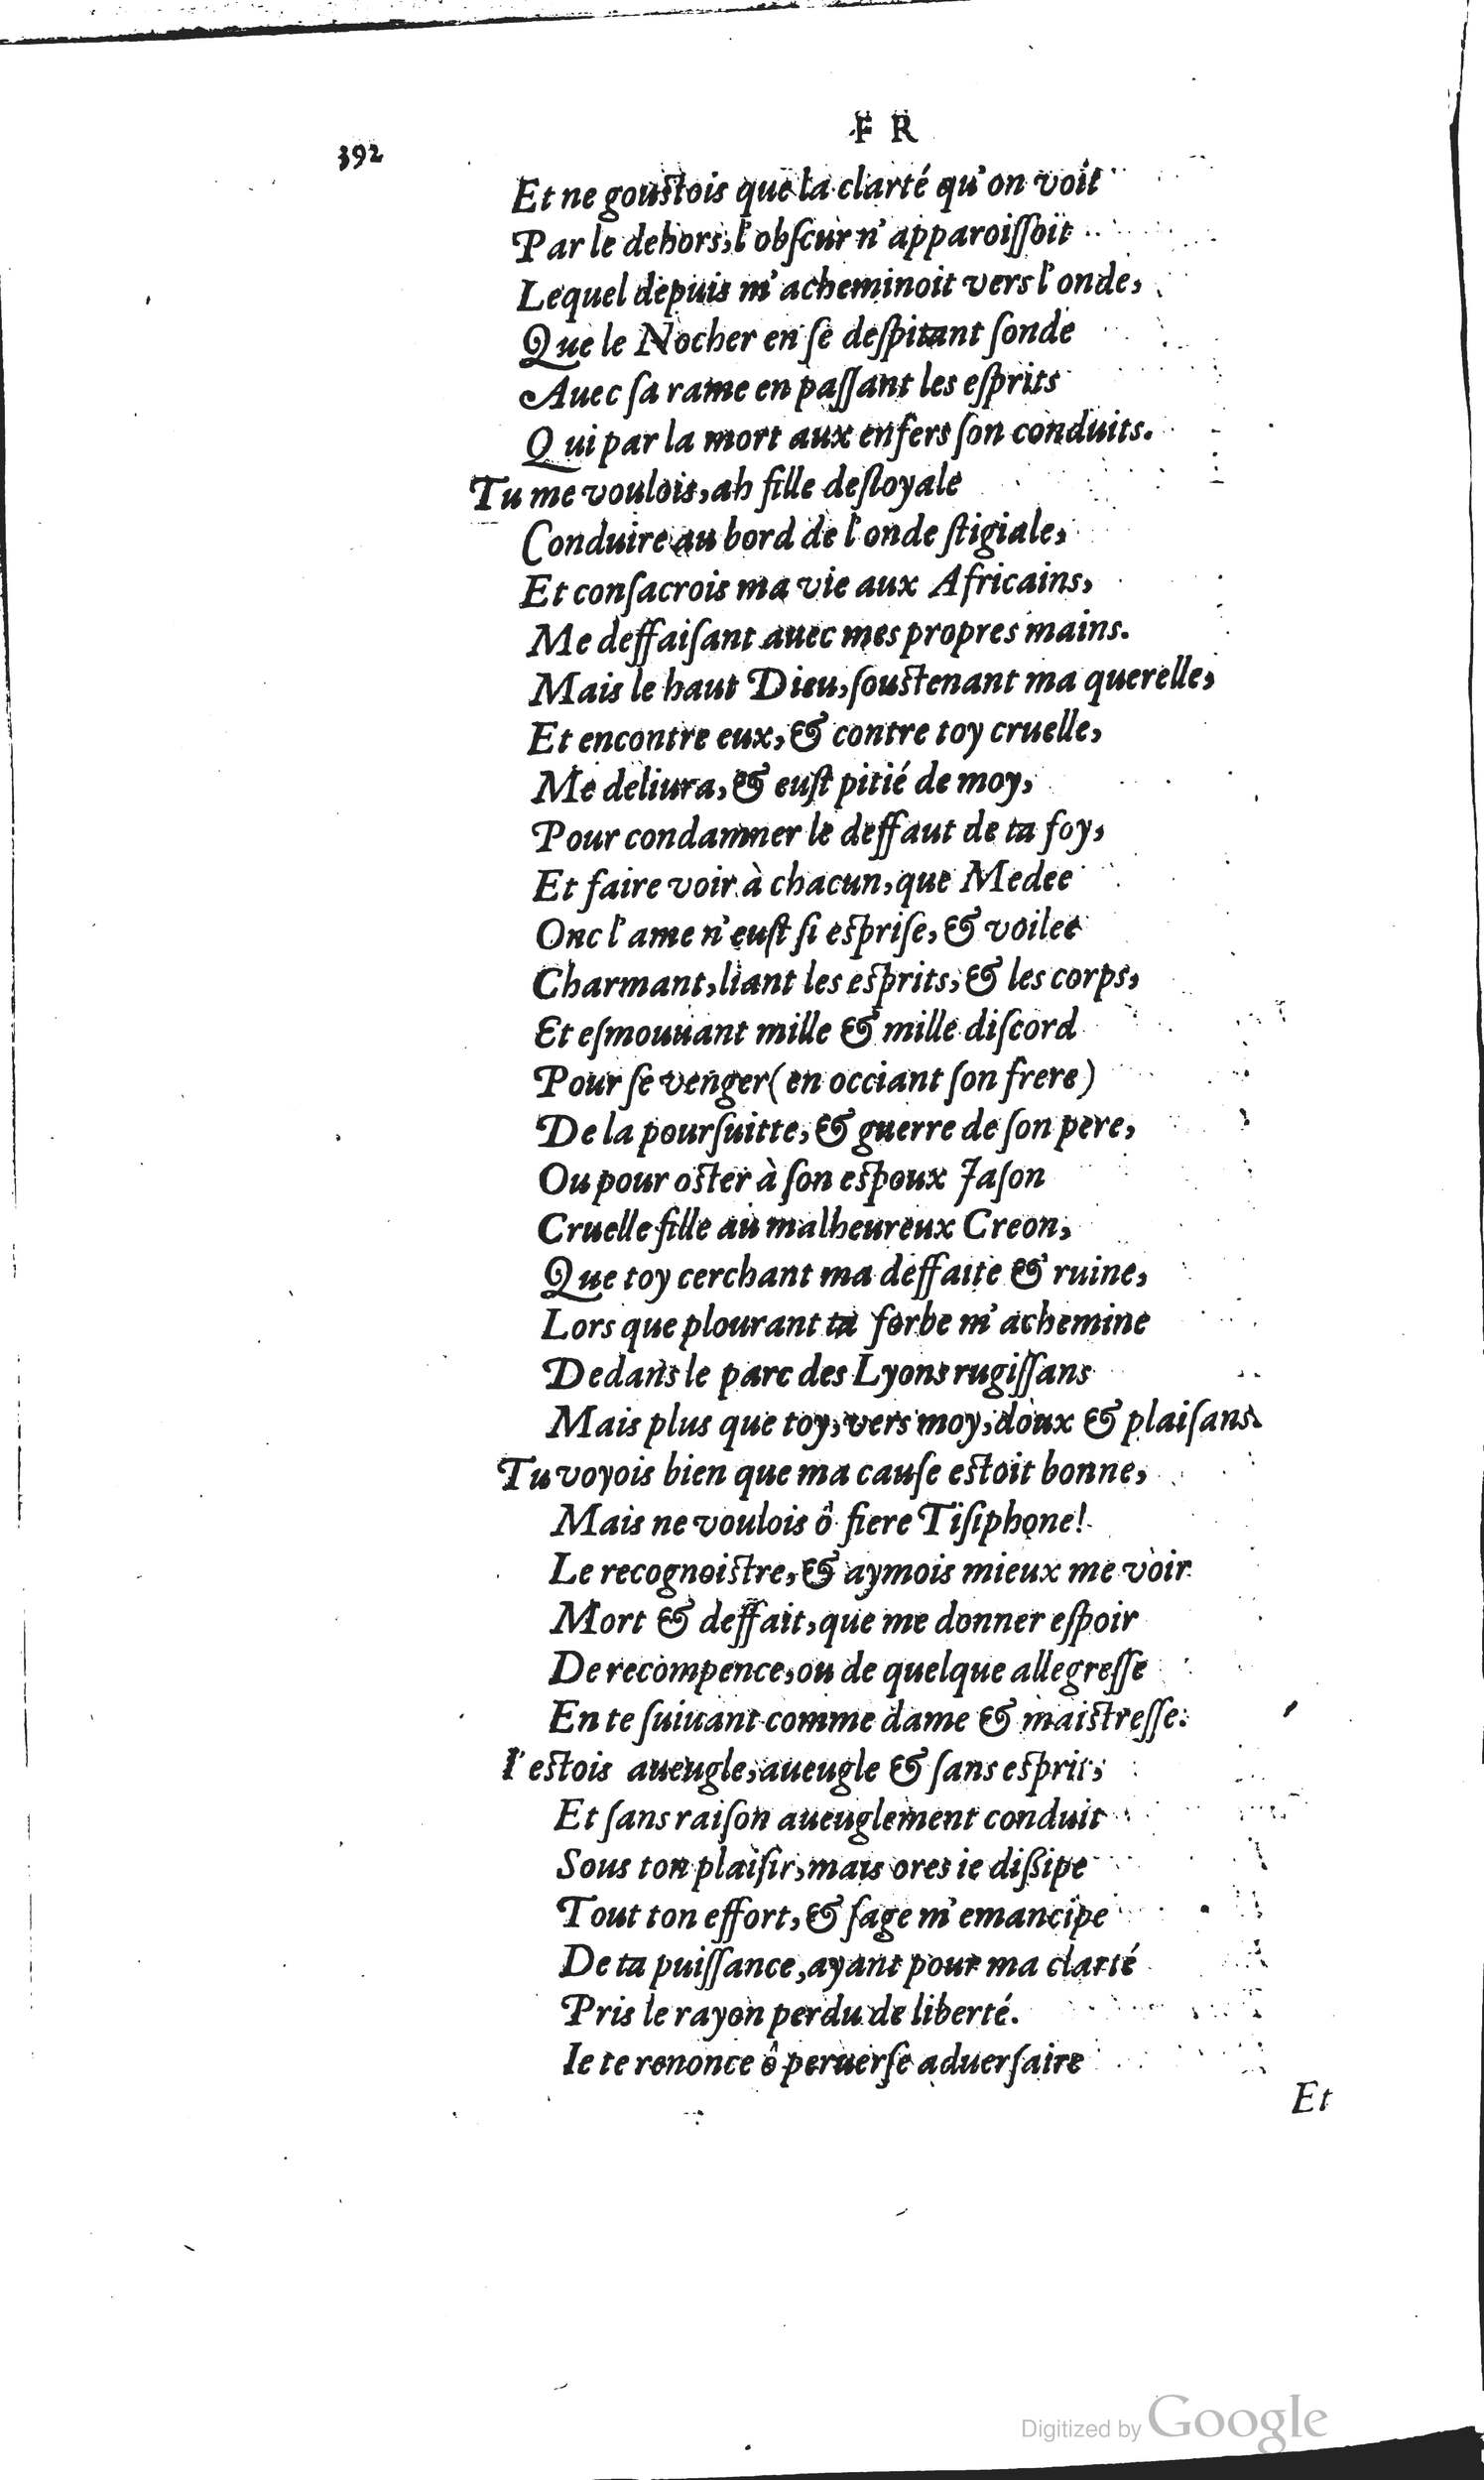 392
F R
Et ne gouſtois que la clarté qu'on voit
Par le dehors, l'obſcur n'apparoiſſoit
Lequel depuis m'acheminoit vers l'onde,
Que le Nocher en ſe deſpitant ſonde
Auec ſa rame en paſſant les eſprits
Qui par la mort aux enfers ſon conduits.
Tu me voulois, ah fille deſloyale
Conduire au bord de l'onde ſtigiale,
Et conſacrois ma vie aux Africains,
Me deffaiſant auec mes propres mains.
Mais le haut Dieu, ſouſtenant ma querelle,
Et encontre eux, & contre toy cruelle,
Me deliura, & euſt pitié de moy,
Pour condamner le deffaut de ta foy,
Et faire voir à chacun, que Medee
Onc l'ame n'euſt ſi eſpriſe, & voilee
Charmant, liant les eſprits, & les corps,
Et eſmouuant mille & mille diſcord
Pour ſe venger (en occiant ſon frere)
De la pourſuitte, & guerre de ſon pere,
Ou pour oſter à ſon eſpoux Jaſon
Cruelle fille au malheureux Creon,
Que toy cerchant ma deffaite & ruine,
Lors que plourant ta forbe m'achemine
Dedans le parc des Lyons rugiſſans
Mais plus que toy, vers moy, doux & plaiſans.
Tu voyois bien que ma cauſe eſtoit bonne,
Mais ne voulois ô fiere Tiſiphone!
Le recognoiſtre, & aymois mieux me voir
Mort & deffait, que me donner eſpoir
De recompence, ou de quelque allegreſſe
En te ſuiuant comme dame & maiſtreſſe.
I'eſtois aueugle, aueugle & ſans eſprit,
Et ſans raiſon aueuglement conduit
Sous ton plaiſir, mais ores ie diſſipe
Tout ton effort, & ſage m'emancipe
De ta puiſſance, ayant pour ma clarté
Pris le rayon perdu de liberté.
Ie te renonce ô peruerſe aduerſaire
Et
Digitized by Google